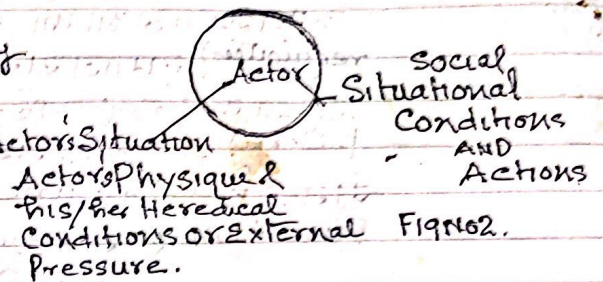 Actor
Social
Situational
Conditions
AND
Actions
ctor's Situation
Actors Physique &
his/her Heredical
Conditions or External
Pressure.
Fig No 2.